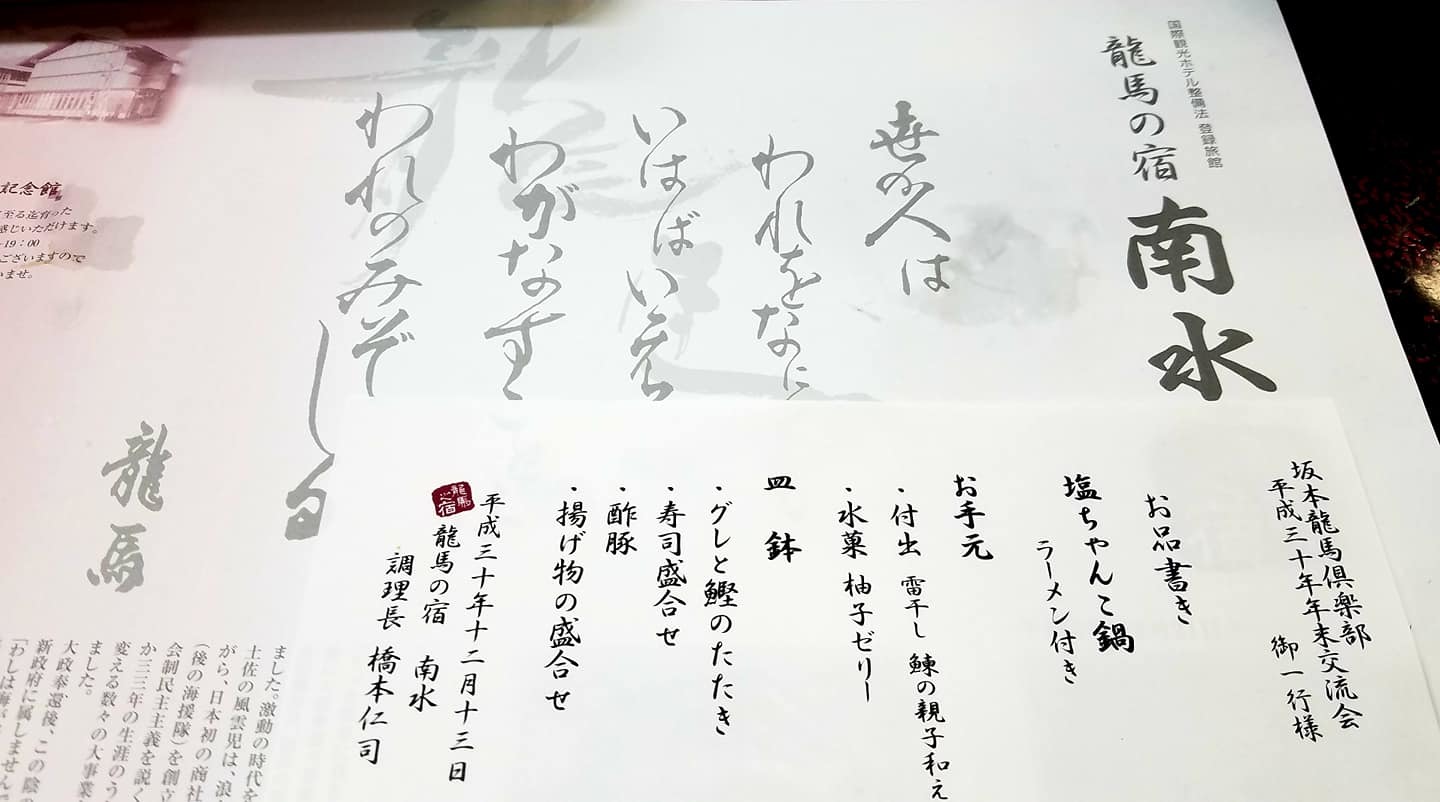 国際観光ホテル整備法 登録旅館
龍馬の宿 南水
世の人は
われをなに
いはばいへ
わがなす
われのみぞ
しる
龍馬
坂本龍馬倶楽部
平成三十年年末交流会 御一行様
お品書き
塩ちゃんこ鍋
ラーメン付き
お手元
・付出 雷干し 鰊の親子和え
・水菓 柚子ゼリー
皿鉢
・グレと鰹のたたき
・寿司盛合せ
・酢豚
・揚げ物の盛合せ
平成三十年十二月十三日
龍馬之宿
龍馬の宿 南水
調理長 橋本仁司
記念館
至る迄育った
感じいただけます。
-19：00
ございますので
いませ。
ました。激動の時代を
土佐の風雲児は、浪
がら、日本初の商社
（後の海援隊）を創立
会制民主主義を説く
か三三年の生涯のう
変える数々の大事業
ました。
大政奉還後、この陰の
新政府に属しません
「わしは海が